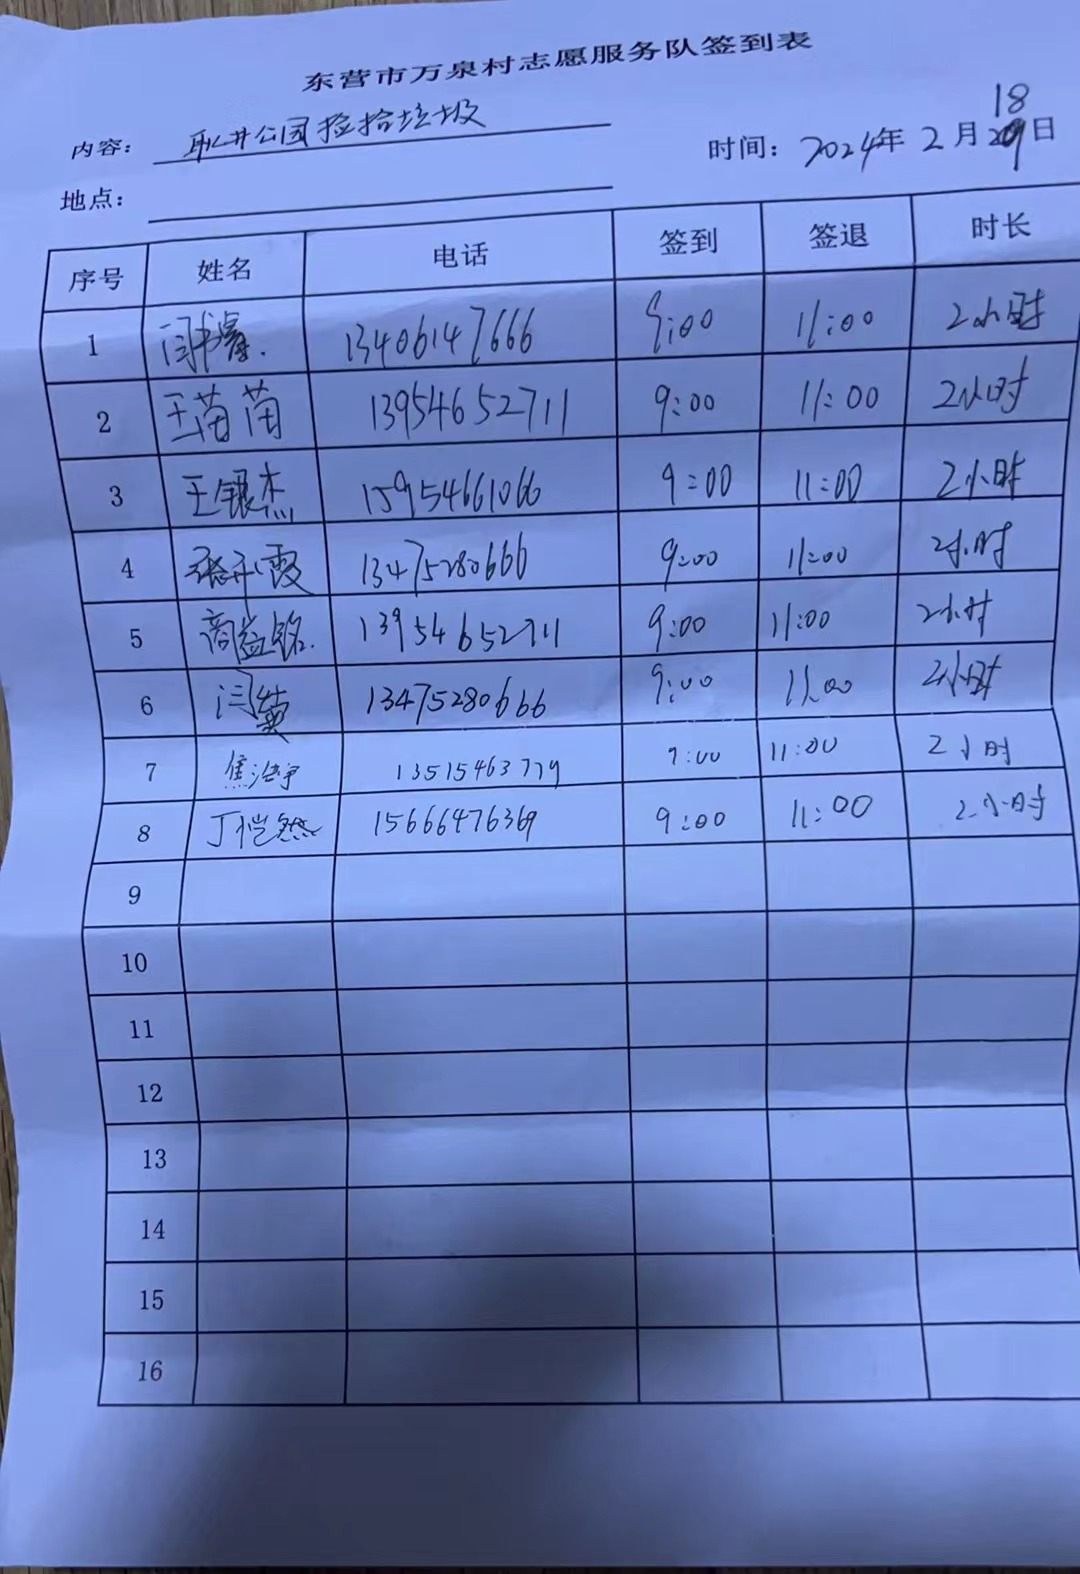 东营市万泉村志愿服务队签到表
内容: 耿井公园捡拾垃圾
时间: 2024年2月18日
地点:
序号 姓名 电话 签到 签退 时长
1 闫书睿. 13406147666 9:00 11:00 2小时
2 王苗苗 13954652711 9:00 11:00 2小时
3 王银杰 15954661066 9:00 11:00 2小时
4 霞 13475280666 9:00 11:00 2小时
5 商益铭. 13954652711 9:00 11:00 2小时
6 闫 13475280666 9:00 11:00 2小时
7 焦 13515463779 9:00 11:00 2小时
8 丁恺然 15666476369 9:00 11:00 2小时
9
10
11
12
13
14
15
16